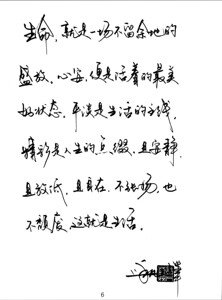 生命，就是一场不留余地的
盛放，心安，便是活着的最美
好状态，平淡是生活的主线，
精彩是人生的点缀，且安静，
且放低，且自在，不张扬，也
不颓废，这就是生活。
6